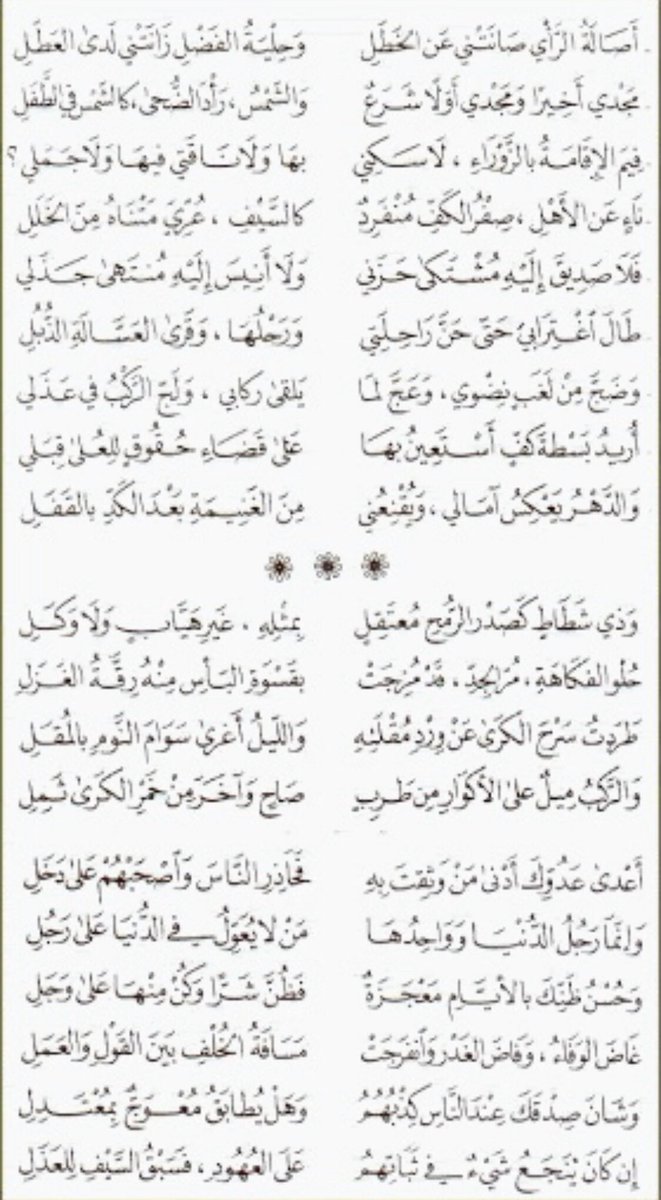 أَصَالَةُ الرَّأْيِ صَانَتْنِي عَنِ الخَطَلِ وَحِلْيَةُ الفَضْلِ زَانَتْنِي لَدَى العَطَلِ
مَجْدِي أَخِيرًا وَمَجْدِي أَوَّلًا شَرَعٌ وَالشَّمْسُ، رَأْدَ الضُّحَى، كَالشَّمْسِ فِي الطَّفَلِ
فِيمَ الإِقَامَةُ بِالزَّوْرَاءِ، لَا سَكَنِي بِهَا وَلَا نَاقَتِي فِيهَا وَلَا جَمَلِي؟
نَاءٍ عَنِ الأَهْلِ، صِفْرُ الكَفِّ مُنْفَرِدٌ كَالسَّيْفِ، عُرِّيَ مَتْنَاهُ مِنَ الخَلَلِ
فَلَا صَدِيقَ إِلَيْهِ مُشْتَكَى حَزَنِي وَلَا أَنِيسَ إِلَيْهِ مُنْتَهَى جَذَلِي
طَالَ اغْتِرَابِي حَتَّى حَنَّ رَاحِلَتِي وَرَحْلُهَا، وَقَرَى العَسَّالَةِ الذُّبُلِ
وَضَجَّ مِنْ لَغَبٍ نِضْوِي، وَعَجَّ لِمَا يَلْقَى رِكَابِي، وَلَجَّ الرَّكْبُ فِي عَذَلِي
أُرِيدُ بَسْطَةَ كَفٍّ أَسْتَعِينُ بِهَا عَلَى قَضَاءِ حُقُوقٍ لِلْعُلَى قِبَلِي
وَالدَّهْرُ يَعْكِسُ آمَالِي، وَيُقْنِعُنِي مِنَ الغَنِيمَةِ بَعْدَ الكَدِّ بِالقَفَلِ
وَذِي شَطَاطٍ كَصَدْرِ الرُّمْحِ مُعْتَقِلٍ بِمِثْلِهِ، غَيْرِ هَيَّابٍ وَلَا وَكَلِ
حُلْوِ الفَكَاهَةِ، مُرِّ الجِدِّ، قَدْ مُزِجَتْ بِقَسْوَةِ البَأْسِ مِنْهُ رِقَّةُ الغَزَلِ
طَرَدْتُ سَرْحَ الكَرَى عَنْ وِرْدِ مُقْلَتِهِ وَاللَّيْلُ أَغْرَى سَوَامَ النَّوْمِ بِالمُقَلِ
وَالرَّكْبُ مِيلٌ عَلَى الأَكْوَارِ مِنْ طَرِبٍ صَاحٍ وَآخَرَ مِنْ خَمْرِ الكَرَى ثَمِلِ
أَعْدَى عَدُوِّكَ أَدْنَى مَنْ وَثِقْتَ بِهِ فَحَاذِرِ النَّاسَ وَاصْحَبْهُمْ عَلَى دَخَلِ
وَإِنَّمَا رَجُلُ الدُّنْيَا وَوَاحِدُهَا مَنْ لَا يُعَوِّلُ فِي الدُّنْيَا عَلَى رَجُلِ
وَحُسْنُ ظَنِّكَ بِالأَيَّامِ مَعْجَزَةٌ فَظُنَّ شَرًّا وَكُنْ مِنْهَا عَلَى وَجَلِ
غَاضَ الوَفَاءُ، وَفَاضَ الغَدْرُ وَانْفَرَجَتْ مَسَافَةُ الخُلْفِ بَيْنَ القَوْلِ وَالعَمَلِ
وَشَانَ صِدْقَكَ عِنْدَ النَّاسِ كِذْبُهُمُ وَهَلْ يُطَابَقُ مُعْوَجٌّ بِمُعْتَدِلِ
إِنْ كَانَ يَنْجَعُ شَيْءٌ فِي ثَبَاتِهِمُ عَلَى العُهُودِ، فَسَبْقُ السَّيْفِ لِلْعَذَلِ